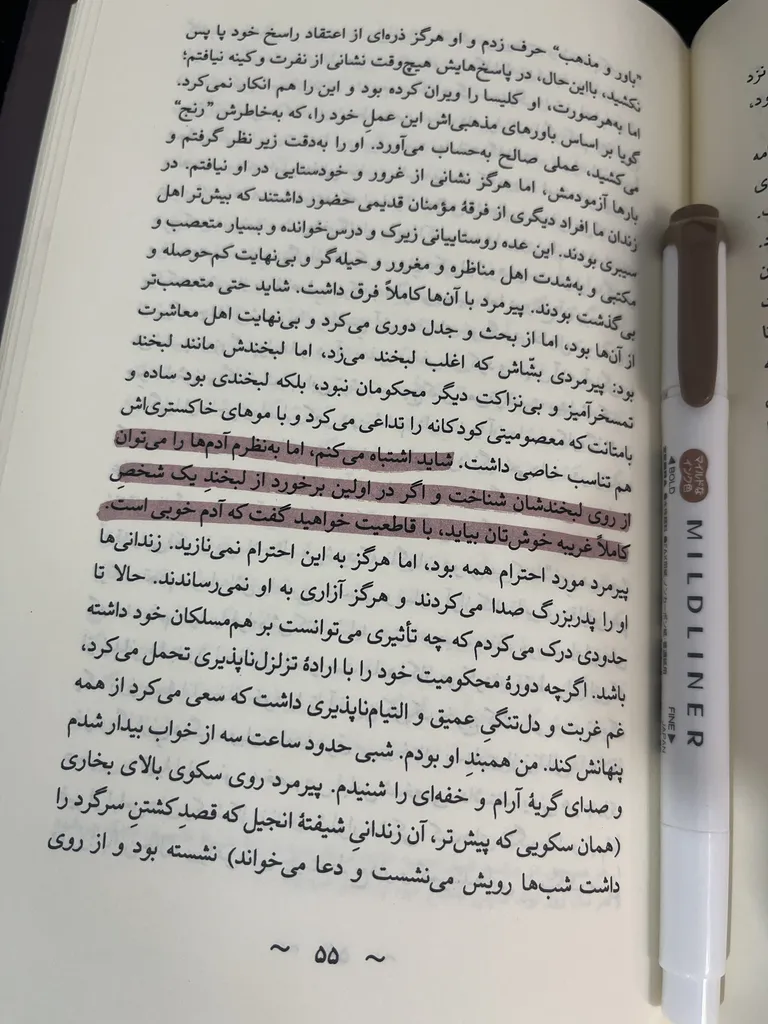 "باور و مذهب" حرف زدم و او هرگز ذره‌ای از اعتقاد راسخ خود پا پس
نکشید، بااین‌حال، در پاسخ‌هایش هیچ‌وقت نشانی از نفرت و کینه نیافتم؛
اما به‌هرصورت، او کلیسا را ویران کرده بود و این را هم انکار نمی‌کرد.
گویا بر اساس باورهای مذهبی‌اش این عملِ خود را، که به‌خاطرش "رنج"
می‌کشید، عملی صالح به‌حساب می‌آورد. او را به‌دقت زیر نظر گرفتم و
بارها آزمودمش، اما هرگز نشانی از غرور و خودستایی در او نیافتم. در
زندان ما افراد دیگری از فرقهٔ مؤمنان قدیمی حضور داشتند که بیش‌تر اهل
سیبری بودند. این عده روستاییانی زیرک و درس‌خوانده و بسیار متعصب و
مکتبی و به‌شدت اهل مناظره و مغرور و حیله‌گر و بی‌نهایت کم‌حوصله و
بی‌گذشت بودند. پیرمرد با آن‌ها کاملاً فرق داشت. شاید حتی متعصب‌تر
از آن‌ها بود، اما از بحث و جدل دوری می‌کرد و بی‌نهایت اهل معاشرت
بود: پیرمردی بشّاش که اغلب لبخند می‌زد، اما لبخندش مانند لبخند
تمسخرآمیز و بی‌نزاکت دیگر محکومان نبود، بلکه لبخندی بود ساده و
بامتانت که معصومیتی کودکانه را تداعی می‌کرد و با موهای خاکستری‌اش
هم تناسب خاصی داشت. شاید اشتباه می‌کنم، اما به‌نظرم آدم‌ها را می‌توان
از روی لبخندشان شناخت و اگر در اولین برخورد از لبخندِ یک شخصِ
کاملاً غریبه خوش‌تان بیاید، با قاطعیت خواهید گفت که آدم خوبی است.
پیرمرد مورد احترام همه بود، اما هرگز به این احترام نمی‌نازید. زندانی‌ها
او را پدربزرگ صدا می‌کردند و هرگز آزاری به او نمی‌رساندند. حالا تا
حدودی درک می‌کردم که چه تأثیری می‌توانست بر هم‌مسلکان خود داشته
باشد. اگرچه دورهٔ محکومیت خود را با ارادهٔ تزلزل‌ناپذیری تحمل می‌کرد،
غم غربت و دل‌تنگیِ عمیق و التیام‌ناپذیری داشت که سعی می‌کرد از همه
پنهانش کند. من همبندِ او بودم. شبی حدود ساعت سه از خواب بیدار شدم
و صدای گریهٔ آرام و خفه‌ای را شنیدم. پیرمرد روی سکوی بالای بخاری
(همان سکویی که پیش‌تر، آن زندانیِ شیفتهٔ انجیل که قصدِ کشتنِ سرگرد را
داشت شب‌ها رویش می‌نشست و دعا می‌خواند) نشسته بود و از روی
~ ۵۵ ~
マイルドな
インク色
◀BOLD
MILDLINER
FINE▶
JAPAN